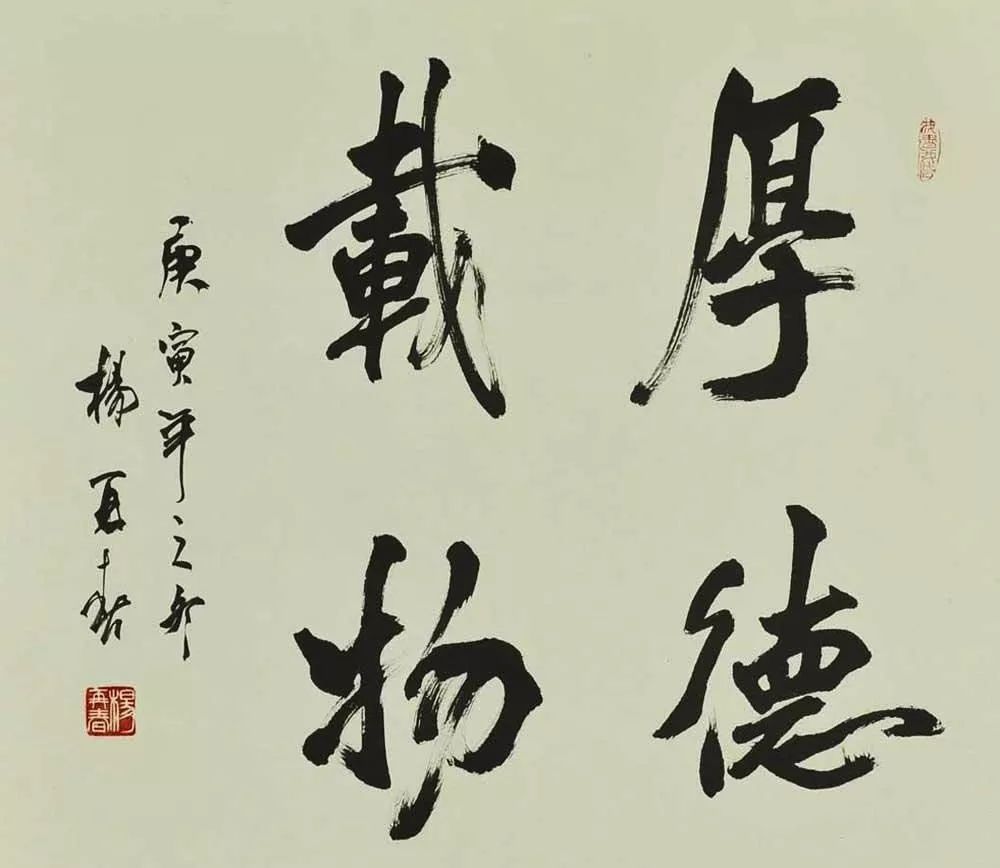 厚德
載物
庚寅年之春
楊再春
楊再春